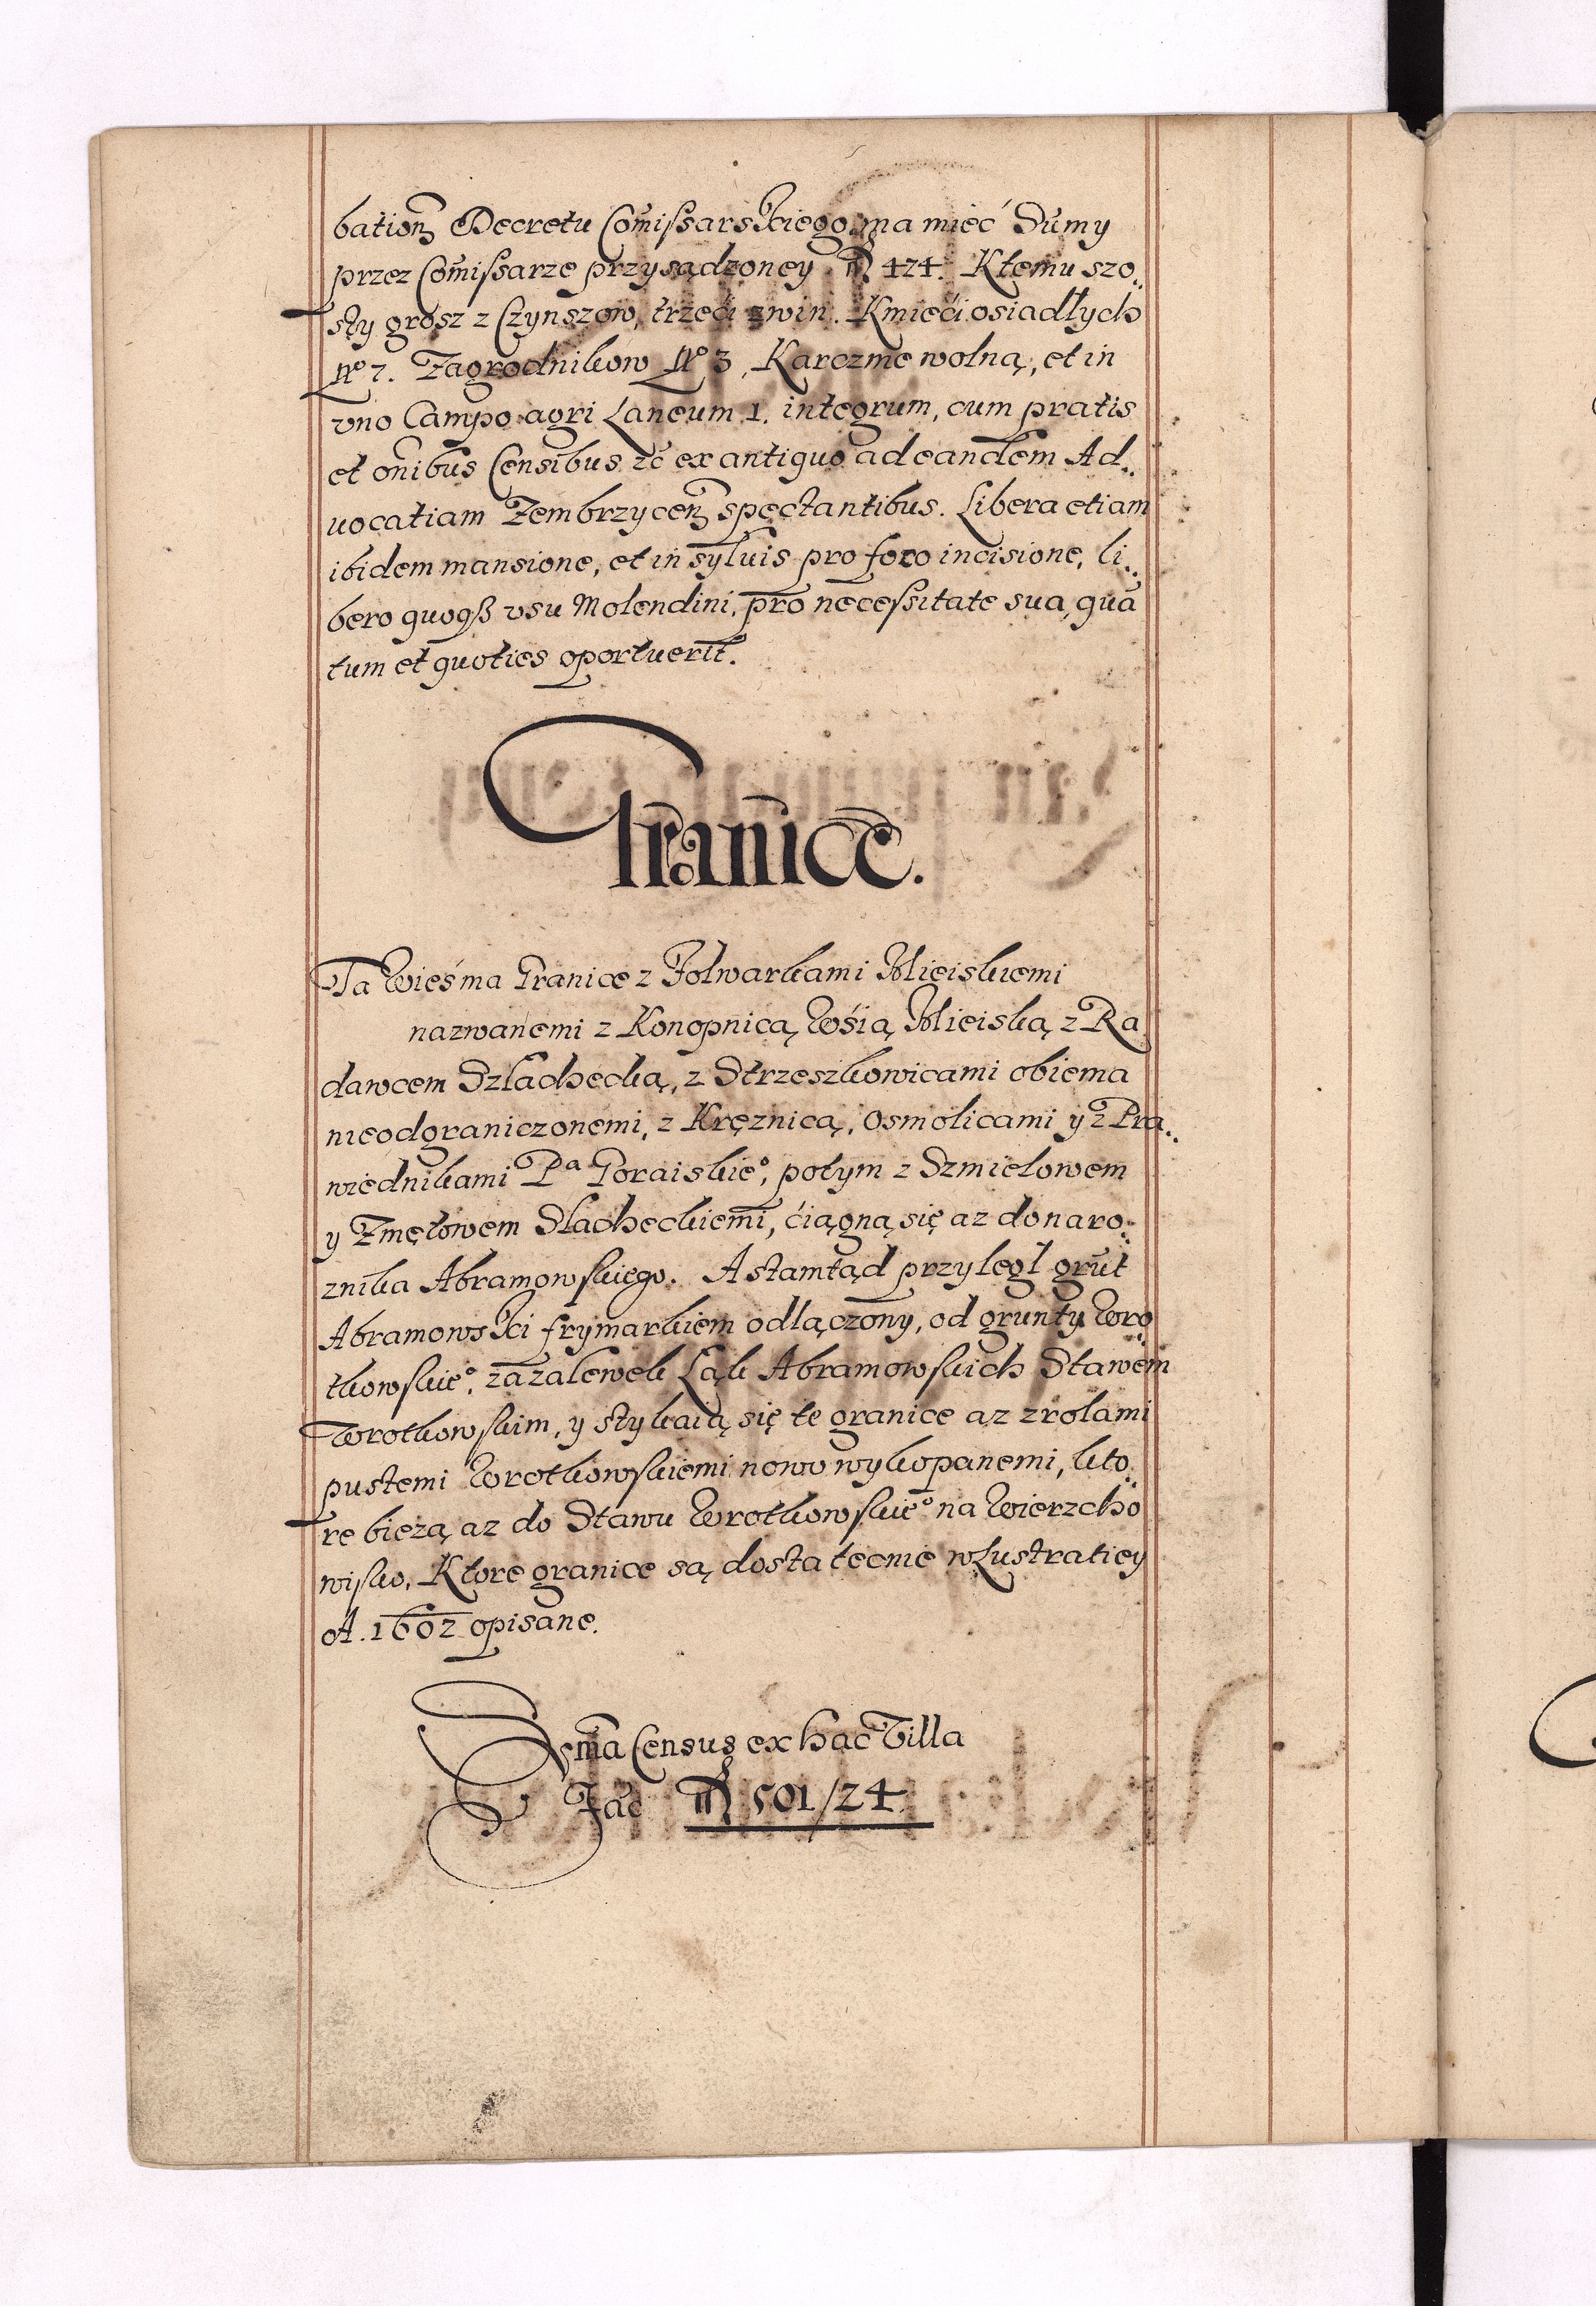 bationẽ Decretu Comissarskiego ma mieć Sumy
przez Comissarze przysądzoney fl 424. Ktemu szo..
sty grosz z Czynszow, trzeći zwin. Kmiećí osiadłych
Nº 7. Zagrodnikow Nº 3, Karczmę wolną, et in
vno Campo agri Laneum 1. integrum, cum pratis
et oñibus Censibus &c ex antiquo ad eandem Ad..
uocatiam Zembrzyceñ spectantibus. Libera etiam
ibidem mansione, et in syluis pro foro incisione, li..
bero quoqß vsu Molendini, pro necessitate sua, quã
tum et quoties oportuerit.
Granice.
Ta Wieś ma Granice z Folwarkami Mieiskiemi
nazwanemi z Konopnicą Wśią Mieiską z Ra
dawcem Szlachecką, z Strzeszkowicami obiema
nieodgraniczonemi, z Kręznicą, Osmolicami y z Pra..
wiednikami Pª Goraiskieº, potym z Szmielowem
y Zmęłowem Slacheckiemi, ćiągną się az do naro..
znika Abramowskiego. A stamtąd przyległ grũt
Abramowski frymarkiem odlączony, od grunty Wro
tkowskieº, za zalewek Ląk Abramowskich Stawem
Wrotkowskim, y stykaią się te granice az z rolami
pustemi Wrotkowskiemi nowo wykopanemi, kto..
re bieżą az do Stawu Wrotkowskieº na Wierzcho
wisko. Ktore granice są dostatecnie w Lustratiey
A. 1602 opisane.
Sum̃a Census ex hac Villa
Fac fl 501/24.